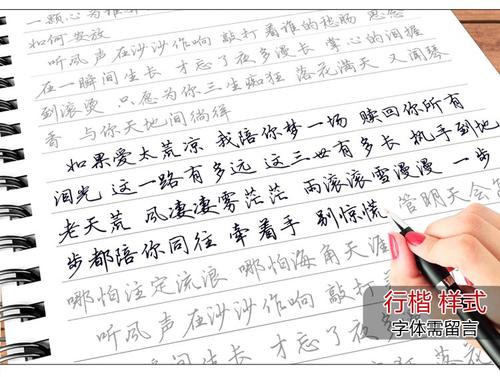 一颗心为谁
如何安放
听风声在沙沙作响 敲打着谁的热肠 思念
在一瞬间生长 才忘了夜多漫长 掌心的泪握
到滚烫 只愿为你三生痴狂 落花满天 又闻琴
香 与你天地间徜徉
如果爱太荒凉 我陪你梦一场 赎回你所有
泪光 这一路有多远 这三世有多长 执手到地
老天荒 风凄凄雾茫茫 雨滚滚雪漫漫 一步
步都陪你同往 牵着手 别惊慌 管明天会怎
哪怕注定流浪 哪怕海角天涯
听风声在沙沙作响 敲打
间生长 才忘了夜多
行楷 样式
字体需留言